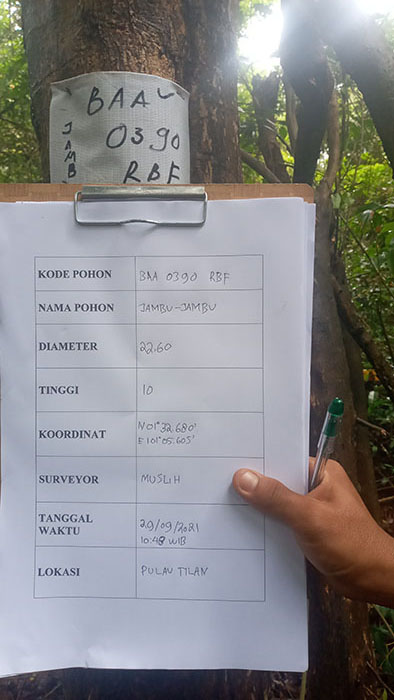 BAA
0390
JAMB
RBF
KODE POHON BAA 0390 RBF
NAMA POHON JAMBU-JAMBU
DIAMETER 22,60
TINGGI 10
KOORDINAT N 01° 32,680'
E 101° 05.605'
SURVEYOR MUSLIH
TANGGAL 29/09/2021
WAKTU 10:48 WIB
LOKASI PULAU TILAN